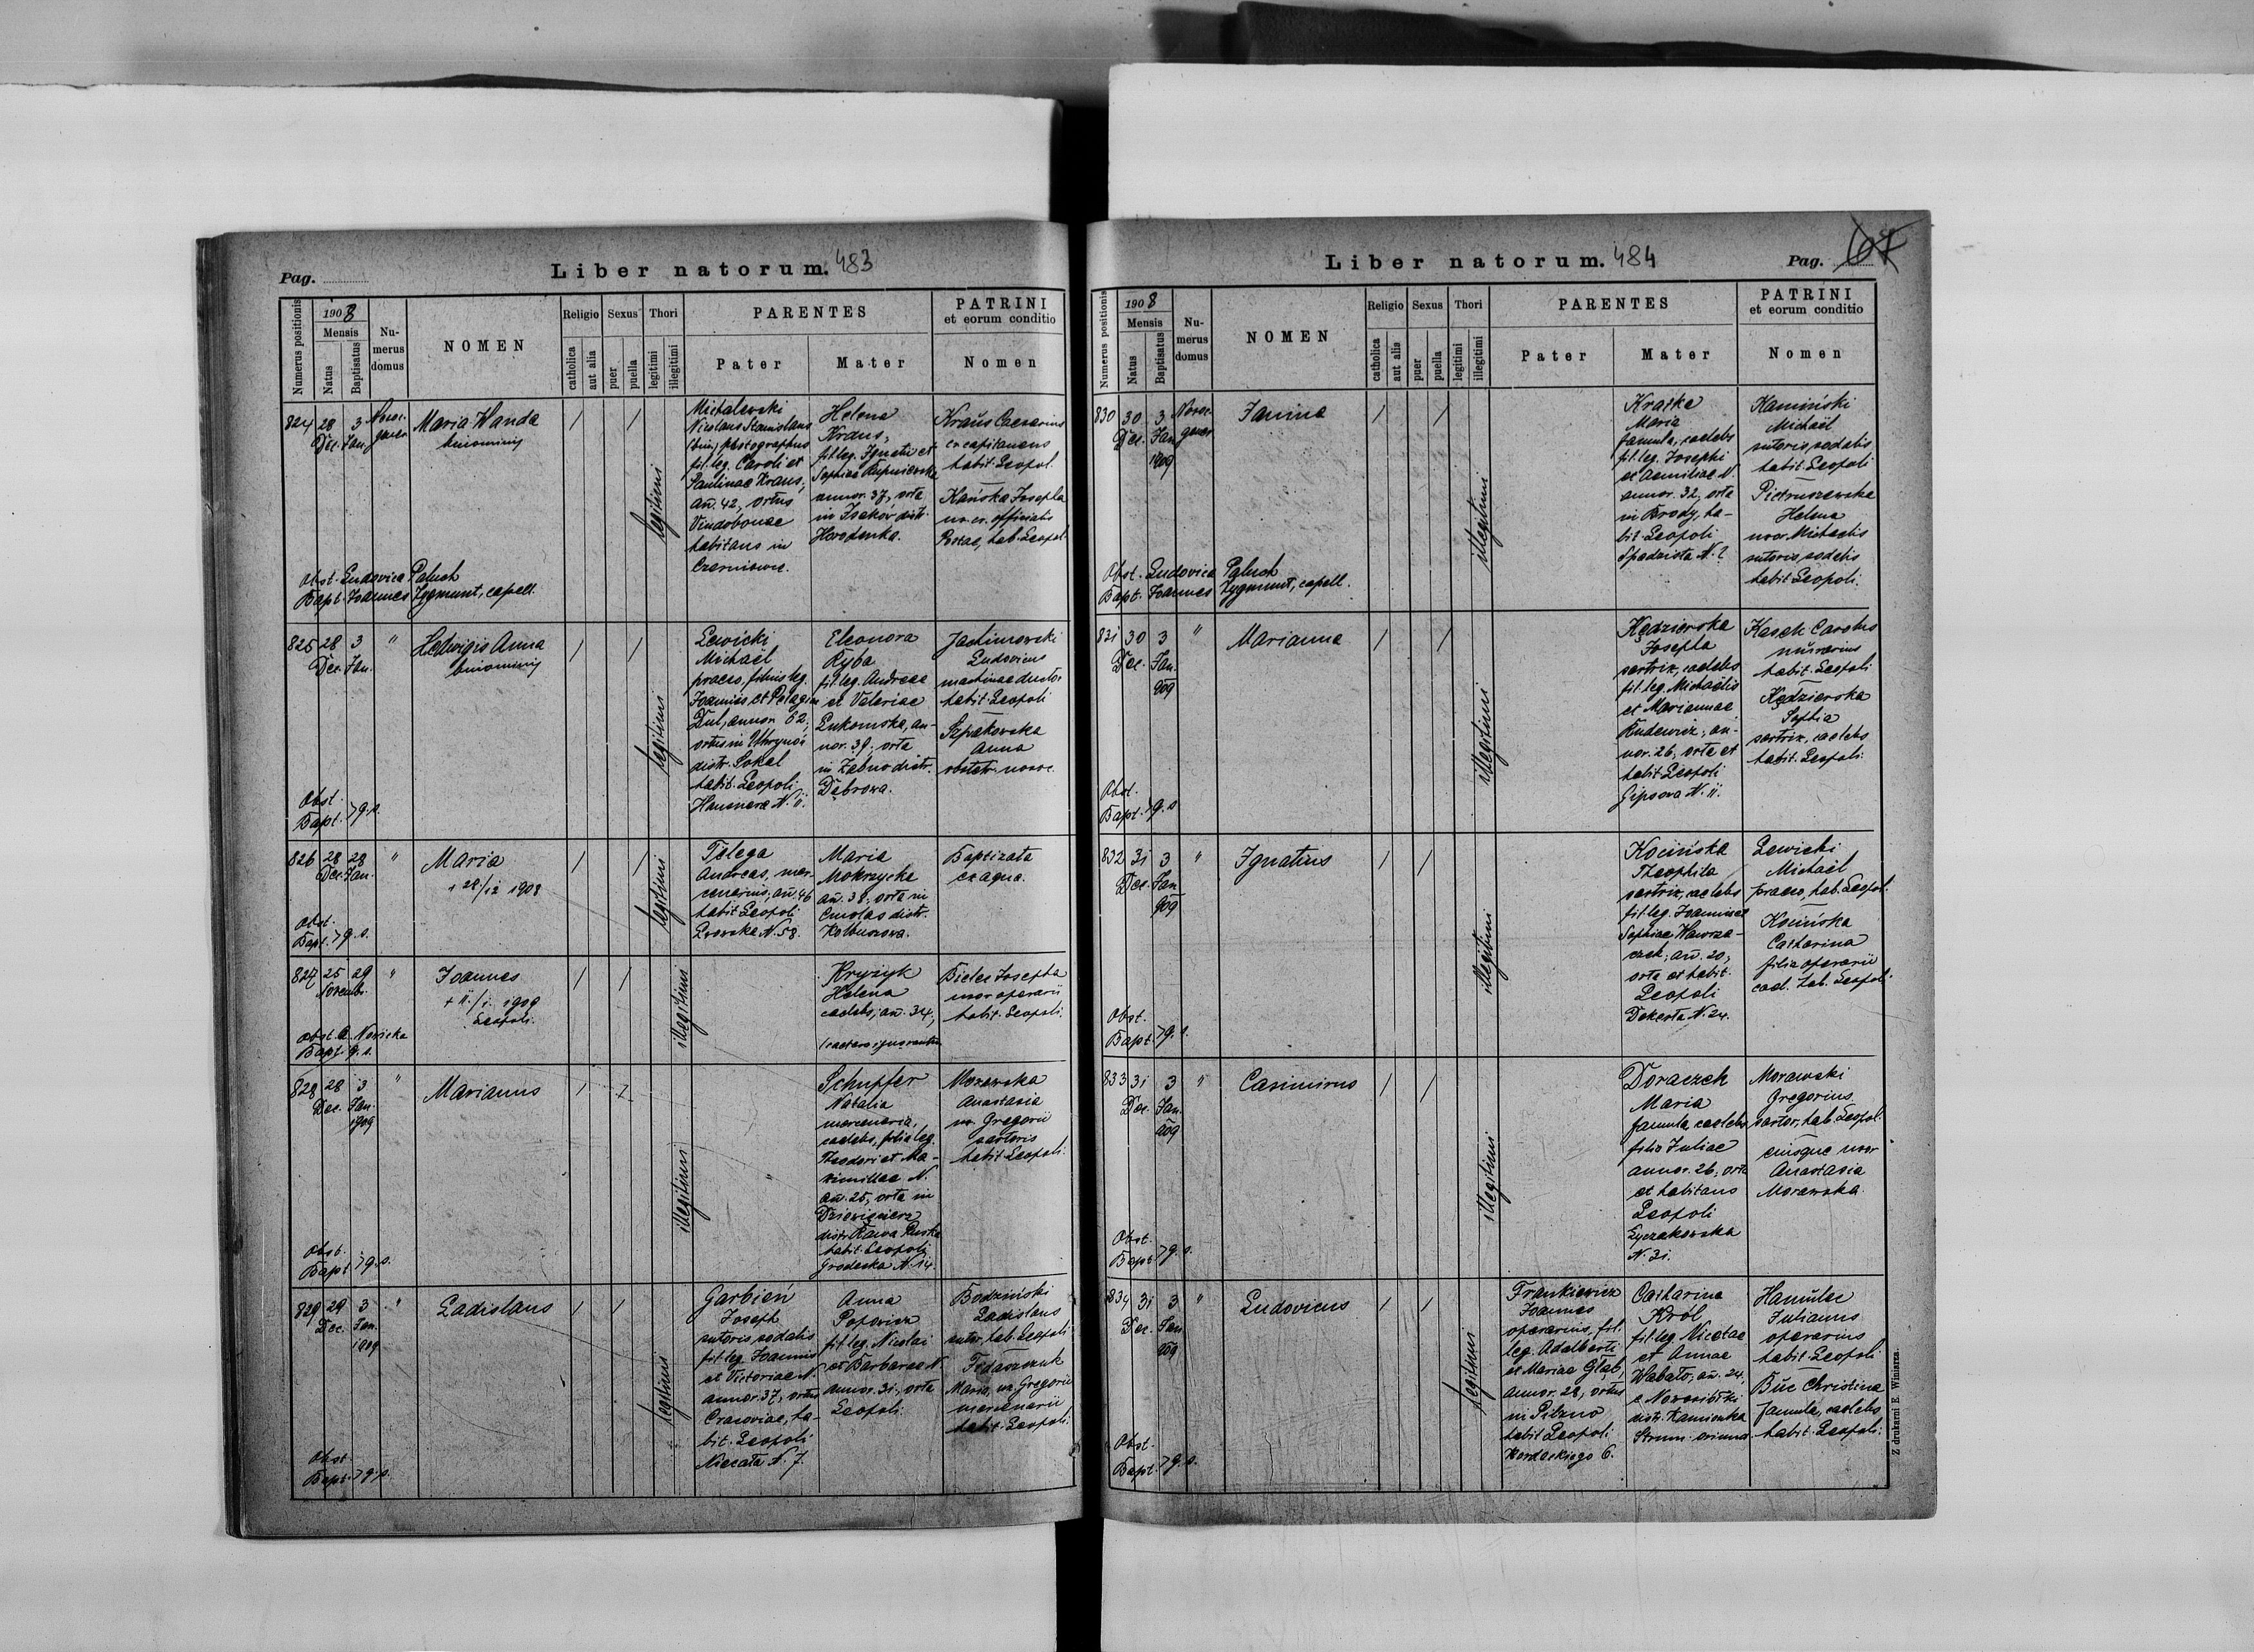 Pag.
Liber natorum. 483
Numerus positionis
1908
Mensis
Natus
Baptisatus
Nu-
merus
domus
NOMEN
Religio
catholica
aut alia
Sexus
puer
puella
Thori
legitimi
illegitimi
PARENTES
Pater
Mater
PATRINI
et eorum conditio
Nomen
824
28
Dec.
3
Jan.
Maria Wanda
binominis
legitimi
Michalewski
Nicolaus Stanislaus
(bin) photographus
fil. leg. Caroli et
Paulinae Kraus,
ań. 42, ortus
Vindobonae
habitans in
Czerniowce.
Helena
Kraus,
fil. leg. Ignatii et
Sophiae
annor. 37, orta
in Isaków distr.
Horodenka.
Kraus Caesarius
habit. Leopol.
Kańska Josepha
ux. officialis
hab. Leopol.
Obst. Ludovica Paluch
Bapt. Joannes Zygmunt, capell.
825
28
Dec.
3
Jan.
"
Hedwigis Anna
binominis
legitimi
Lewicki
Michaël
praeco, filius leg.
Joannis et Pelagiae
Dul, annor. 62,
ortus in Uhrynów
distr. Sokal
habit. Leopoli
Hausnera N. 11.
Eleonora
Ryba
fil. leg. Andreae
et Valeriae
Łukomska, an-
nor. 39, orta
in Żabno distr.
Dąbrowa.
Jachimowski
Ludovicus
machinae ductor
habit. Leopoli
Szpakowska
Anna
obstetr. nosoc.
Obst.
Bapt. > q. s.
826
28
Dec.
28
Jan.
"
Maria
+ 28/12 1908
legitimi
Telega
Andreas, mer-
cenarius, ań. 46
habit. Leopoli
Lwowska N. 58.
Maria
Mokrzycka
ań. 38, orta in
Cmolas distr.
Kolbuszowa.
Baptizata
ex aqua.
Obst.
Bapt. > q. s.
827
25
Novembr.
29
"
Joannes
+ 11/1. 1909
Leopoli.
illegitimi
Kryżyk
Helena
caelebs, ań. 34,
(caetera ignorantur
Bielec Josepha
uxor operarii
habit. Leopoli.
Obst. A. Nowicka
Bapt. q. s.
828
28
Dec.
3
Jan.
1909
"
Marianus
illegitimi
"
Schupfer
Natalia
mercenaria,
caelebs, filia leg.
Theodori et Ma-
ximillae N.
ań. 25, orta in
Dziewięcierz
distr. Rawa Ruska
habit. Leopoli
Grodecka N. 14.
Morawska
Anastasia
ux. Gregorii
sartoris
habit. Leopoli.
Obst.
Bapt. > q. s.
829
29
Dec.
3
Jan.
1909
"
Ladislaus
legitimi
Garbień
Joseph
sutoris sodalis
fil. leg. Joannis
et Victoriae N.
annor. 37, ortus
Cracoviae, ha-
bit. Leopoli
Niecała N. 7.
Anna
Popowicz
fil. leg. Nicolai
et Barbarae N.
annor. 31, orta
Leopoli.
Bodziński
Ladislaus
sutor, hab. Leopoli
Fedaszczuk
Maria, ux. Gregorii
mercenarii
habit. Leopoli.
Obst.
Bapt. > q. s.
Liber natorum. 484
Pag. 67
Numerus positionis
1908
Mensis
Natus
Baptisatus
Nu-
merus
domus
NOMEN
Religio
catholica
aut alia
Sexus
puer
puella
Thori
legitimi
illegitimi
PARENTES
Pater
Mater
PATRINI
et eorum conditio
Nomen
830
30
Dec.
3
Jan.
1909
Janina
illegitimi
Kratka
Maria
famula, caelebs
fil. leg. Josephi
et Aemiliae N.
annor. 32, orta
in Brody, ha-
bit. Leopoli
Spadzista N. 2
Kamiński
Michaël
sutoris sodalis
habit. Leopoli
Pietruszewska
Helena
uxor Michaelis
sutoris sodalis
habit. Leopoli.
Obst. Ludovica Paluch
Bapt. Joannes Zygmunt, capell.
831
30
Dec.
3
Jan.
909
"
Marianna
illegitimi
Kędzierska
Josepha
sartrix, caelebs
fil. leg. Michaëlis
et Mariannae
Rudewicz, an-
nor. 26, orta et
habit. Leopoli
Gipsowa N. 11.
Kasek Carolus
murarius
habit. Leopoli
Kędzierska
Sophia
sartrix, caelebs
habit. Leopoli.
Obst.
Bapt. > q. s.
832
31
Dec.
3
Jan.
909
"
Ignatius
illegitimi
Kocińska
Theophila
sartrix, caelebs
fil. leg. Joannis et
Sophiae Wawrza-
czek, ań. 20,
orta et habit.
Leopoli
Dekerta N. 24.
Lewicki
Michaël
praeco, hab. Leopol.
Kocińska
Catharina
filia operarii
cael. hab. Leopol.
Obst.
Bapt. > q. s.
833
31
Dec.
3
Jan.
909
"
Casimirus
illegitimi
Doraczek
Maria
famula, caelebs
filia Juliae
annor. 26, orta
et habitans
Leopoli
Łyczakowska
N. 31.
Morawski
Gregorius
sartor, hab. Leopol.
eiusque uxor
Anastasia
Morawska.
Obst.
Bapt. > q. s.
834
31
Dec.
3
Jan.
909
"
Ludovicus
legitimi
Frankiewicz
Joannes
operarius, fil.
leg. Adalberti
et Mariae Głąb,
annor. 28, ortus
in Pilzno
habit. Leopoli
Kordeckiego 6.
Catharina
Król
fil. leg. Nicetae
et Annae
ań. 24,
e Nowosiółki
distr. Kamionka
Strum. oriund.
Hamulec
Julianus
operarius
habit. Leopoli.
Buc Christina
famula, caelebs
habit. Leopoli.
Obst.
Bapt. > q. s.
Z drukarni E. Winiarza.